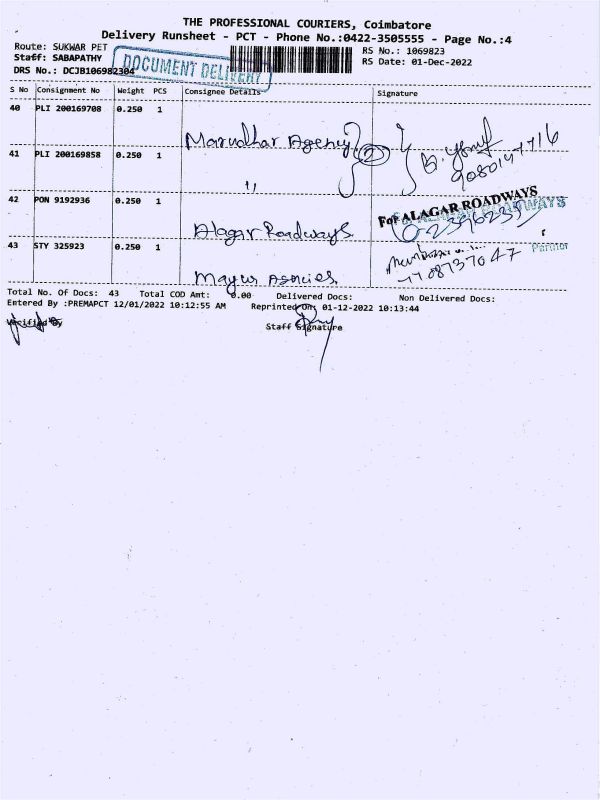 THE PROFESSIONAL COURIERS, Coimbatore
Delivery Runsheet - PCT - Phone No.:0422-3505555 - Page No.:4
Route: SUKWAR PET
RS No.: 1069823
Staff: SABAPATHY
RS Date: 01-Dec-2022
DRS No.: DCJB106982304
DOCUMENT DELIVERY
S No Consignment No Weight PCS Consignee Details Signature
40 PLI 200169708 0.250 1 Marudhar Agency
2
9080147716
41 PLI 200169858 0.250 1 "
42 PON 9192936 0.250 1 Alagar Roadways
For ALAGAR ROADWAYS
43 STY 325923 0.250 1 Mayur Agncies
7708737047
Total No. Of Docs: 43 Total COD Amt: 0.00 Delivered Docs: Non Delivered Docs:
Entered By :PREMAPCT 12/01/2022 10:12:55 AM Reprinted On: 01-12-2022 10:13:44
Verified By Staff Signature